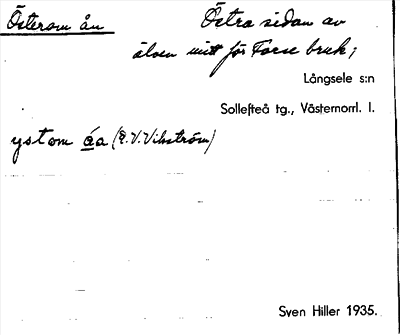 Österom ån Östra sidan av
älven mitt för Forse bruk;
Långsele s:n
Sollefteå tg., Västernorrl. l.
ystom åa (E.V.Vikström)
Sven Hiller 1935.